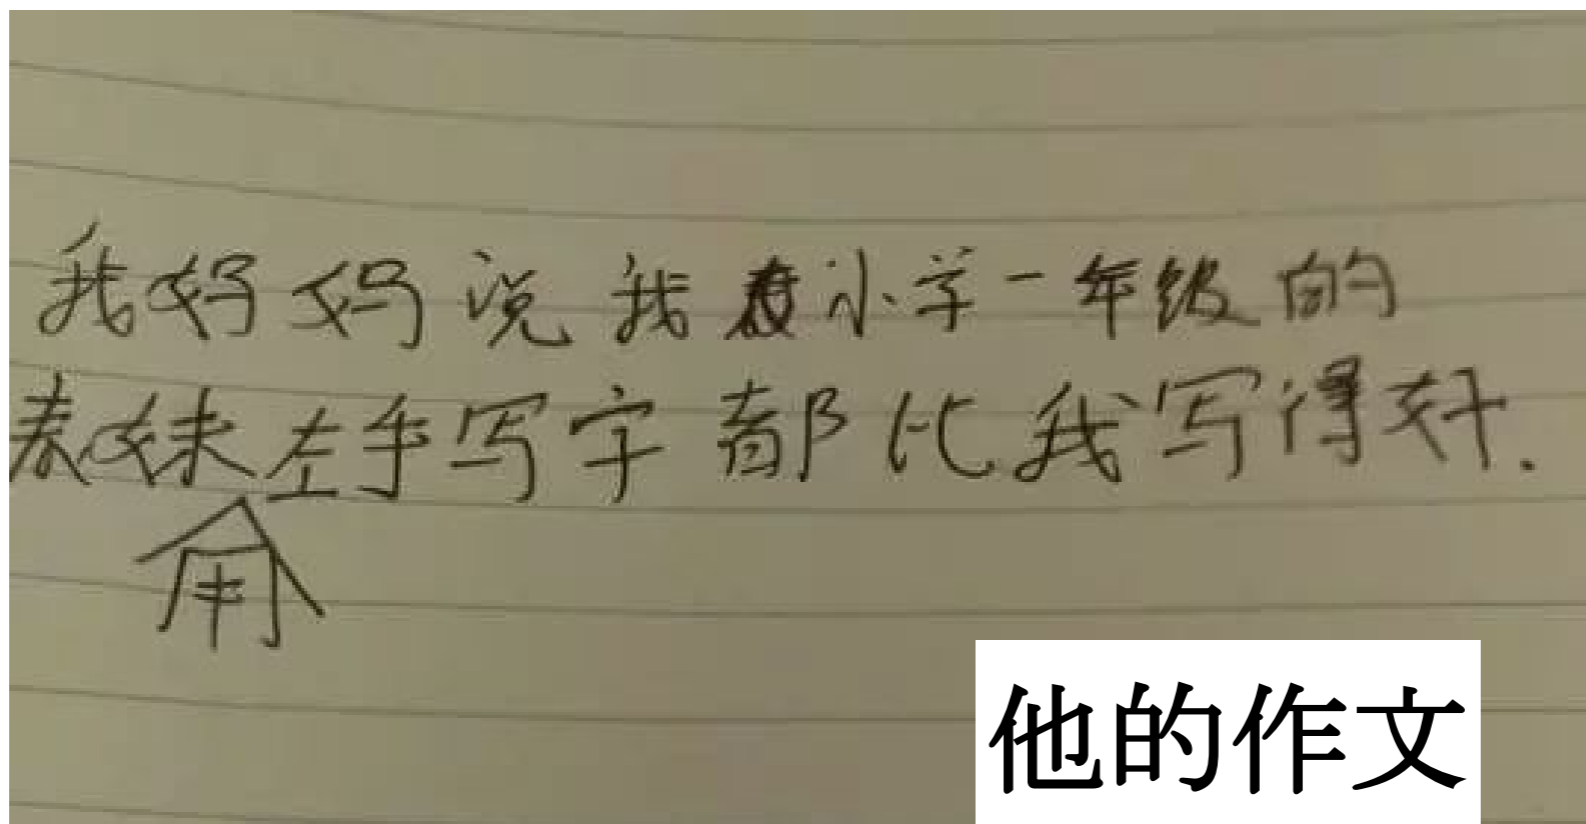 我妈妈说我小学一年级的
表妹左手写字都比我写得好.
用
他的作文